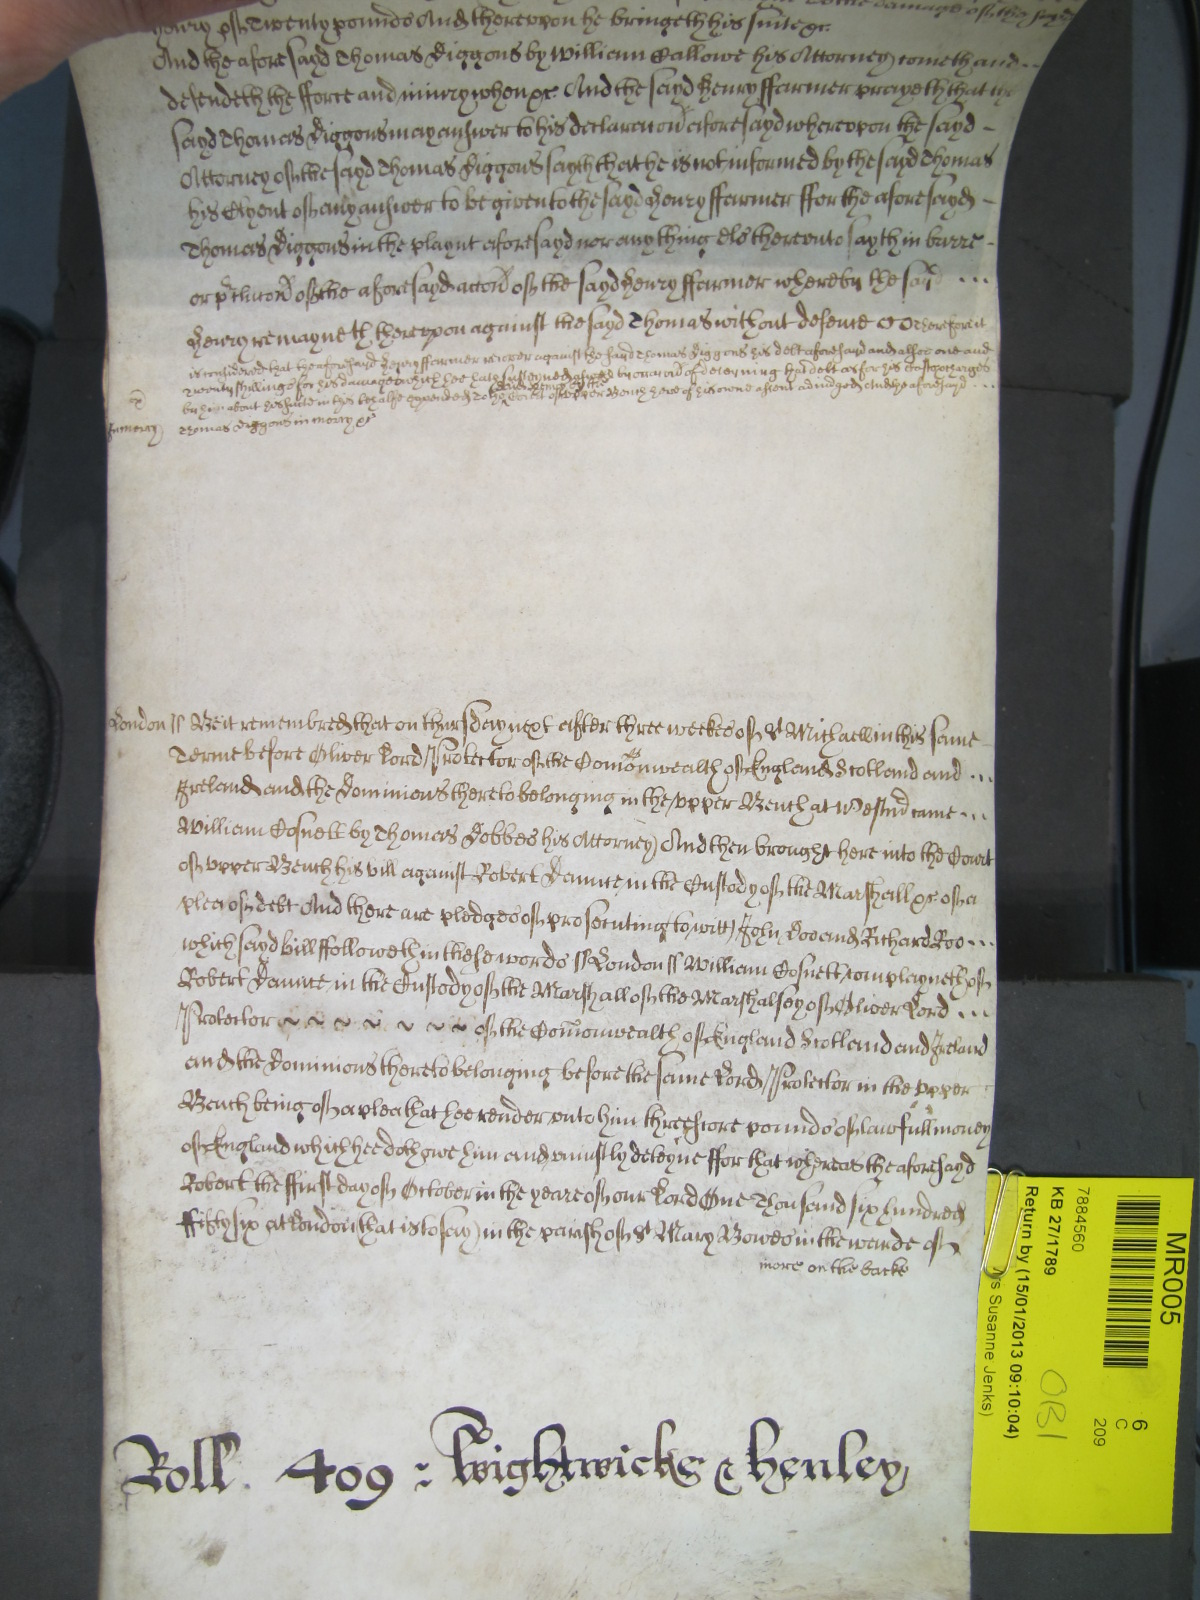 Henry of Twenty pounds And thereupon he bringeth his suite &c.
And the aforesayd Thomas Diggons by William Callowe his Attorney cometh and
defendeth the fforce and iniury when &c. And the sayd Henry ffarmer prayeth that the
sayd Thomas Diggons may answer to his declaracon aforesayd whereupon the sayd
Attorney of the sayd Thomas Diggons sayth that he is not informed by the sayd Thomas
his Clyent of any answer to be given to the sayd Henry ffarmer ffor the aforesayd
Thomas Diggons in the playnt aforesayd nor any thing els thereunto sayth in barre
or pclucon of the aforesayd accon of the sayd Henry ffarmer whereby the sayd
Henry remayneth thereupon against the sayd Thomas without defence Therefore it
is considered that the aforesayd Henry ffarmer recover against the sayd Thomas Diggons his debt aforesayd and alsoe one and
Twenty shyllings for his damages which hee hath susteyned by occacon of deteyning that debt as for his Costs & charges
by him about his suite in this behalfe expended To the Court of Upper Bench here of his owne assent adiudged And the aforesayd
In mercy
Thomas Diggons in mercy &c
London ss Be it remembred that on thursday next after three weekes of St Michaell in this same
Terme before Oliver Lord Protector of the Comonwealth of England Scotland and
Ireland and the Dominions thereto belonging in the upper Bench at Westmr came
William Cosnett by Thomas Dobbes his Attorney And then brought here into the Court
of upper Bench his bill against Robert Dannce in the Custody of the Marshall &c of a
plea of debt And there are pledges of prosecuting to witt John Doe and Richard Roo
which sayd bill ffolloweth in these words ss London ss William Cosnett complayneth of
Robert Dannce in the Custody of the Marshall of the Marshalsey of Oliver Lord
Protector of the Comonwealth of England Scotland and Ireland
and the Dominions thereto belonging before the same Lord Protector in the upper
Bench being of a plea that hee render unto him threescore pounds of lawfull money
of England which hee doth owe him and uniustly deteyne ffor that whereas the aforesayd
Robert the ffirst day of October in the yeare of our Lord One Thousand six hundred
ffifty six at London (that is to say) in the parish of St Mary Bowes in the warde of
more on the backe
Roll. 409 : Wightwicke & Henley
MR005
6
C
209
7884560
KB 27/1789
Return by (15/01/2013 09:10:04)
Susanne Jenks)